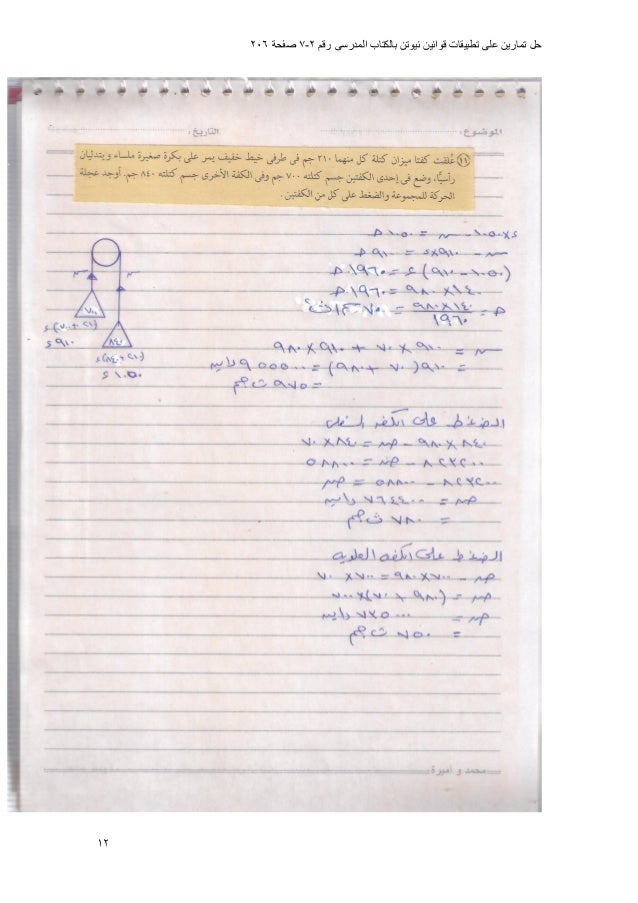 حل تمارين على تطبيقات قوانين نيوتن بالكتاب المدرسى رقم ٢-٧ صفحة ٢٠٦
الموضوع: التاريخ:
١١ عُلقت كفتا ميزان كتلة كل منهما ٢١٠ جم فى طرفى خيط خفيف يمر على بكرة صغيرة ملساء ويتدليان
رأسيًّا، وضع فى إحدى الكفتين جسم كتلته ٧٠٠ جم وفى الكفة الأخرى جسم كتلته ٨٤٠ جم. أوجد عجلة
الحركة للمجموعة والضغط على كل من الكفتين.
١٠٥٠×٤ - س = ١٠٥٠ ح
س - ٩١٠×٤ = ٩١٠ ح
(١٠٥٠ - ٩١٠) ٤ = ١٩٦٠ ح
١٤٠ × ٩٨٠ = ١٩٦٠ ح
ح = ١٤٠×٩٨٠ / ١٩٦٠ = ٧٠ سم/ث٢
٧٠٠
٨٤٠
(٧٠٠+٢١٠) ٤
٩١٠ ٤
(٨٤٠+٢١٠) ٤
١٠٥٠ ٤
س = ٩١٠ × ٧٠ + ٩١٠ × ٩٨٠
= ٩١٠ (٧٠ + ٩٨٠) = ٩٥٥٥٠٠ داين
= ٩٧٥ ث جم
الضغط على الكفه السفلى
٨٤٠ × ٩٨٠ - ض = ٨٤٠ × ٧٠
٨٢٣٢٠٠ - ض = ٥٨٨٠٠
٨٢٣٢٠٠ - ٥٨٨٠٠ = ض
ض = ٧٦٤٤٠٠ داين
= ٧٨٠ ث جم
الضغط على الكفه العلويه
ض - ٧٠٠×٩٨٠ = ٧٠٠×٧٠
ض = (٩٨٠ + ٧٠)×٧٠٠
ض = ٧٣٥٠٠٠ داين
= ٧٥٠ ث جم
محمد و أميرة
١٢